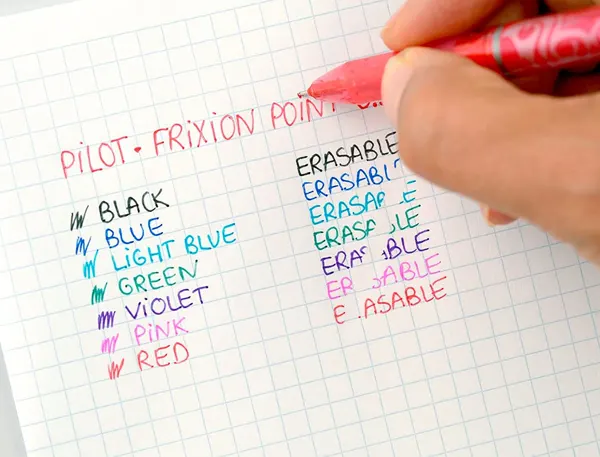 PILOT · FRIXION POINT
BLACK
BLUE
LIGHT BLUE
GREEN
VIOLET
PINK
RED
ERASABLE
ERASABL
ERASA E
ERASA LE
ERA ABLE
ER ABLE
E ASABLE